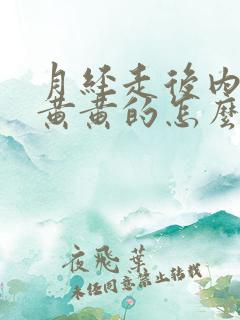 月经走後内
黄黄的怎麽
夜飛葉
未经同意禁止转载